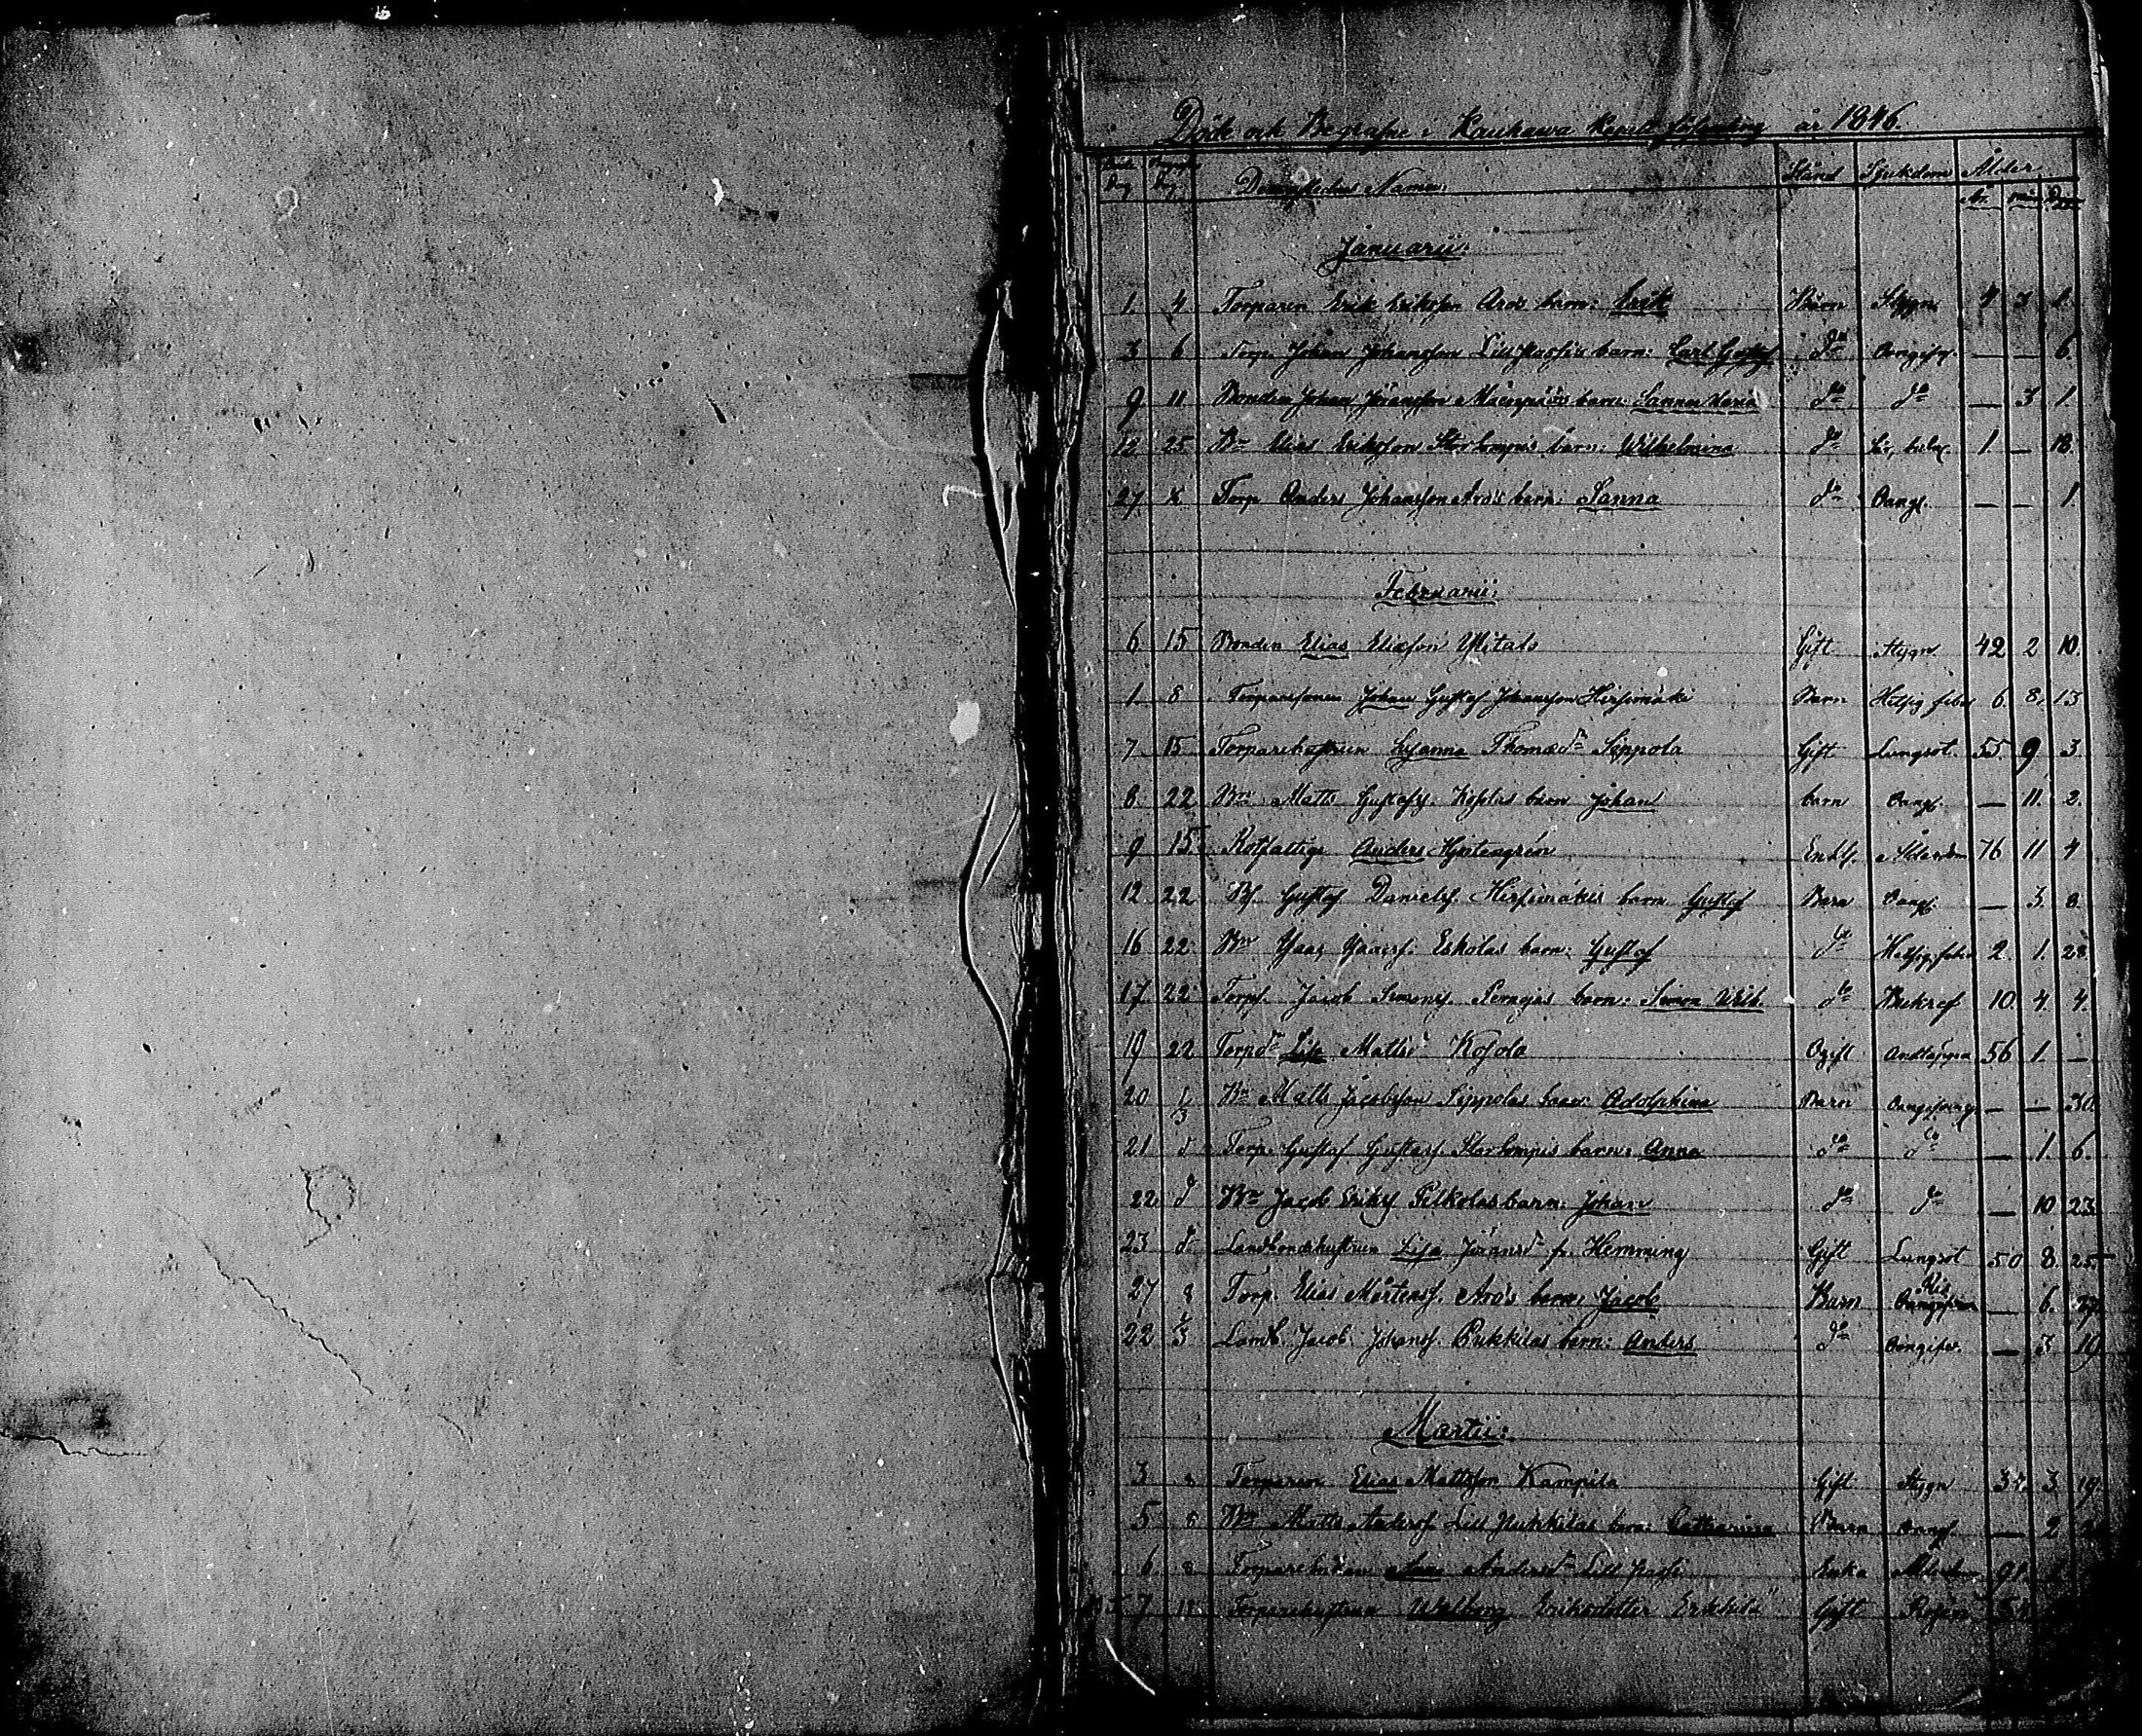 Döde och Begrafne i Kauhawa Kapell församling år 1846.
Döde Dag Begrafn Dag Namn: Stånd Sjukdom Ålder
År. mån. Dagar
Januarii:
1. 4 Torparen Erik Eriksson Aros barn: Erik Barn Stygn 4 3 1.
3 6 Torp. Johan Johansson Lillpassis barn: Carl Gustaf do Oangifv. — — 6.
9 11 Bonden Johan Jöransson Mäenpääs barn: Sanna Maria do do — 3 1.
12 25 Bn Elias Eriksson Storlompis barn: Wilhelmina do 1. — 18.
27 Torp Anders Johansson Aros barn: Sanna do Oangf. — — 1.
Februarii:
6 15 Bonden Elias Eliasson Ylitalo Gift Stygn 42 2 10.
1 8 Torparesonen Johan Gustaf Johansson Hirsimäki Barn Hetsig feber 6. 8. 13
7 15 Torparehustrun Susanna Thomædr Seppola Gift Lungsot. 55. 9 3.
8 22 Bn Matts Gustafss. Kostas barn Johan barn Oangf. — 11. 2.
9 15. Rotfattige Anders Enkl. Ålderdom 76 11 4
12. 22 Bs. Gustaf Danielss. Hirsimäkis barn Gustaf Barn Oangf. — 3. 8
16 22 Bn Isaac Isaacss. Eskolas barn: Gustaf do Hetsig feber 2. 1. 28.
17. 22 Torps. Jacob Simonss. Pernajas barn: Simon Wilh. do Bukref 10. 4. 4.
19 22 Torpdr Lisa Mattsdr Kosola Ogift Andtäppa 56 1. —
20 1/3 Bn Matts Jacobsson Sippolas barn: Adolphina Barn Oangifven — — 30.
21 d Torp. Gustaf Gustafss. Storlompis barn: Anna do do — 1. 6.
22. d Bn Jacob Erikss. Pelkolas barn: Johan do do — 10 23.
23 d. Landbondehustrun Lisa Jöransdr fr. Hemming Gift Lungsot 50 8. 25.
27 8 Torp. Elias Mårtenss. Aros barn: Jacob Barn Oangifven — 6. 27.
22 1/3 Landb. Jacob Johanss. Pukkilas barn: Anders do Oangifv. — 3 19
Martii:
3 8 Torparen Elias Mattsson Kampila Gift Stygn 3 19.
5 8 Bn Matts Anderss. Lill Pukkilas barn: Catharina Barn Oangf. — 2
6 8 Torpareenkan Anna Andersdr Lill passi Enka Ålderdom 91.
7 Torparehustrun Walborg Eriksdotter Erkkilä Gift